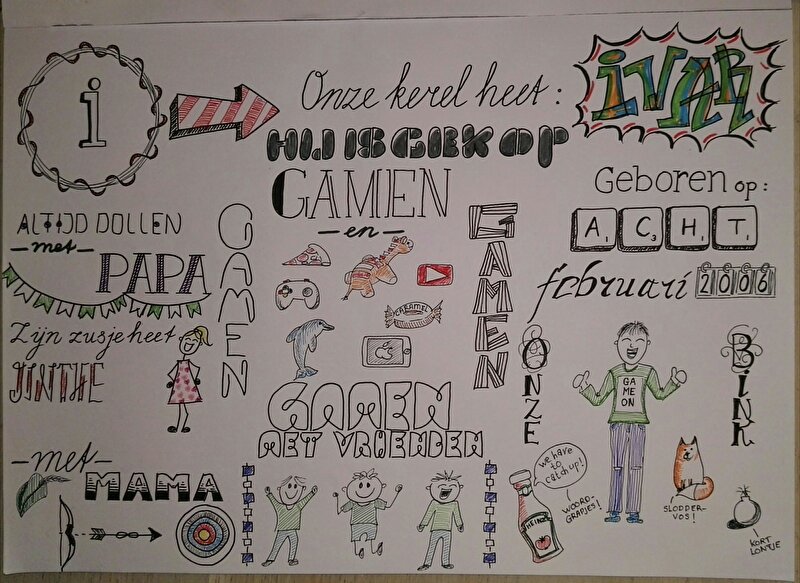 i
Onze kerel heet:
IVAR
HIJ IS GEK OP
GAMEN
-en-
GAMEN
GAMEN
GAMEN
MET VRIENDEN
Geboren op:
A₁ C₃ H₁ T₁
februari 2006
ALTIJD DOLLEN
-met-
PAPA
Zijn zusje heet
JINTHE
-met-
MAMA
CARAMEL
ONZE
BINK
GA
ME
ON
we have
to
catch up!
WOORD-
GRAPJES!
HEINZ
SLODDER-
VOS!
KORT
LONTJE